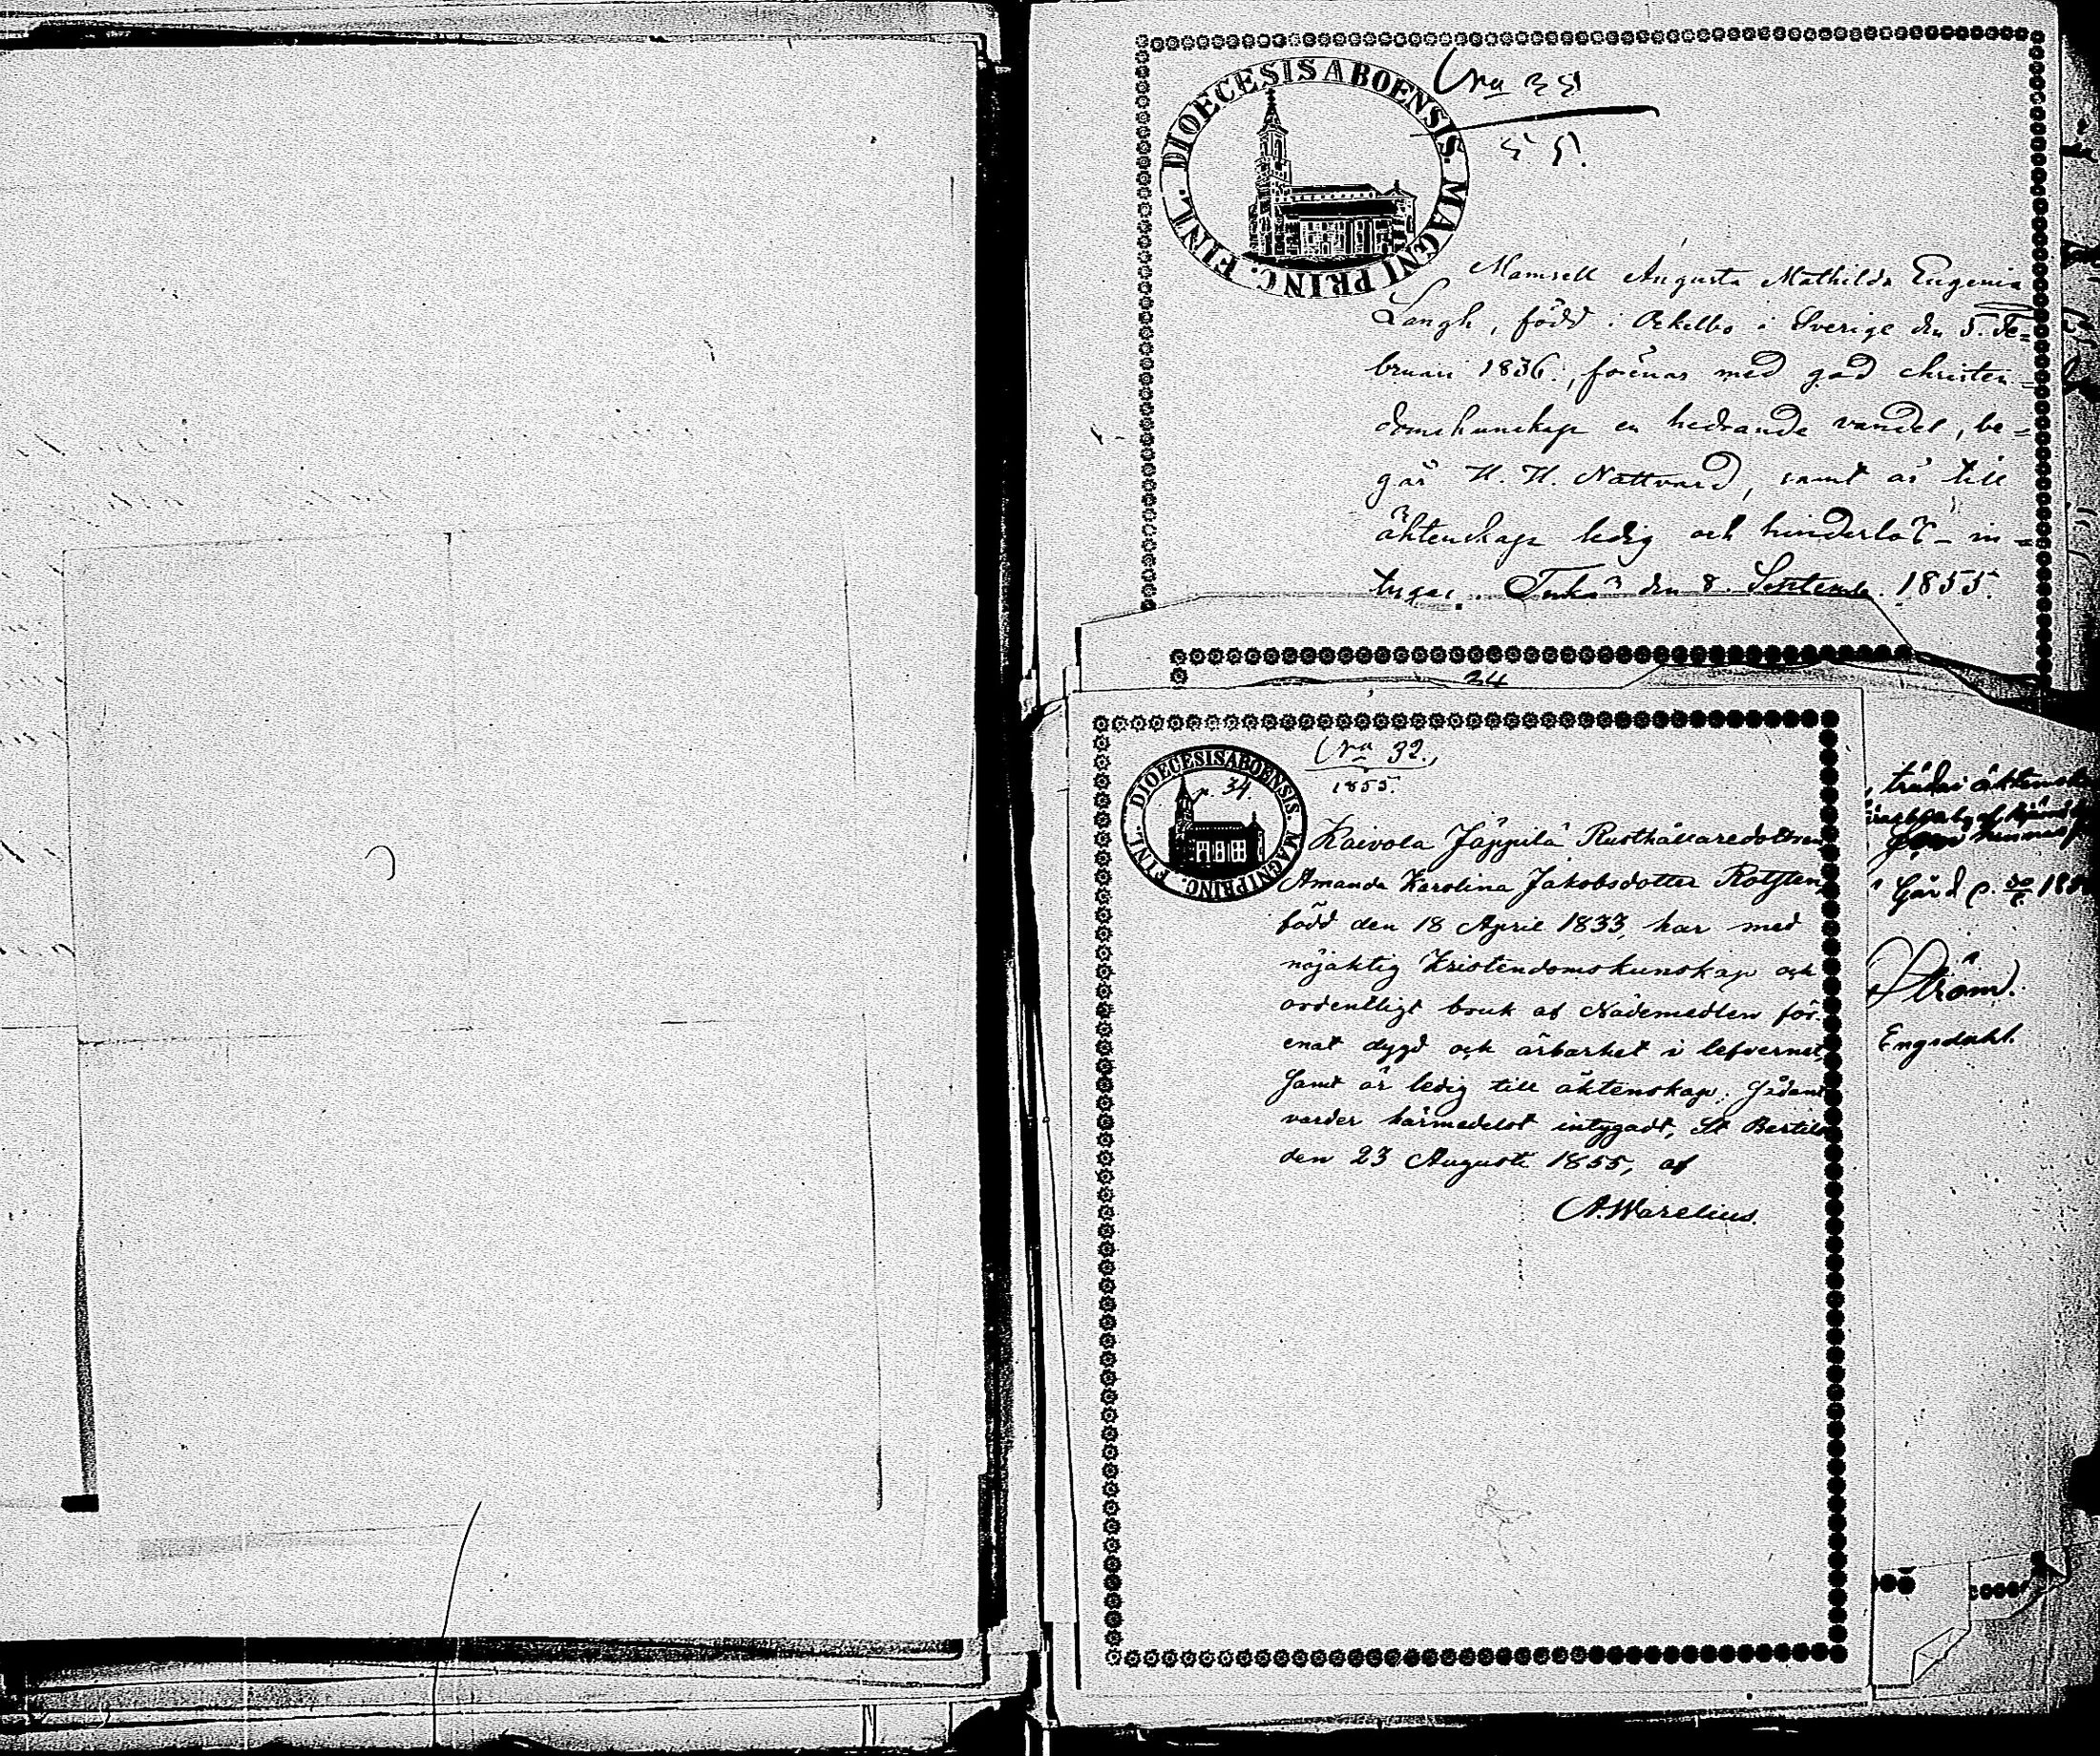 DIOECESIS ABOENSIS. MAGNI PRINC. FINL.
Mamsell Augusta Mathilda Eugenia
Langh, född i Ockelbo i Sverige den 5. Fe=
bruari 1836, förenar med god christen=
domskunskap en hedrande vandel, be=
går H. H. Nattvard, samt är till
äktenskap ledig och hinderlös – in=
tygas. den 8. September 1855.
34
DIOECESIS ABOENSIS. MAGNI PRINC. FINL.
p. 34.
32.
1855.
Kaivola Jäppilä Rusthållaredottren
Amanda Karolina Jakobsdotter
född den 18 April 1833, har med
nöjaktig Kristendomskunskap och
ordentligt bruk af Nådemedlen för-
enat dygd och ärbarhet i lefvernet
samt är ledig till äktenskap; Sådant
varder härmedelst intygadt, St Bertils
den 23 Augusti 1855, af
A. Warelius.
träda i äktensk
Gård p.
Ström.
Engdahl.